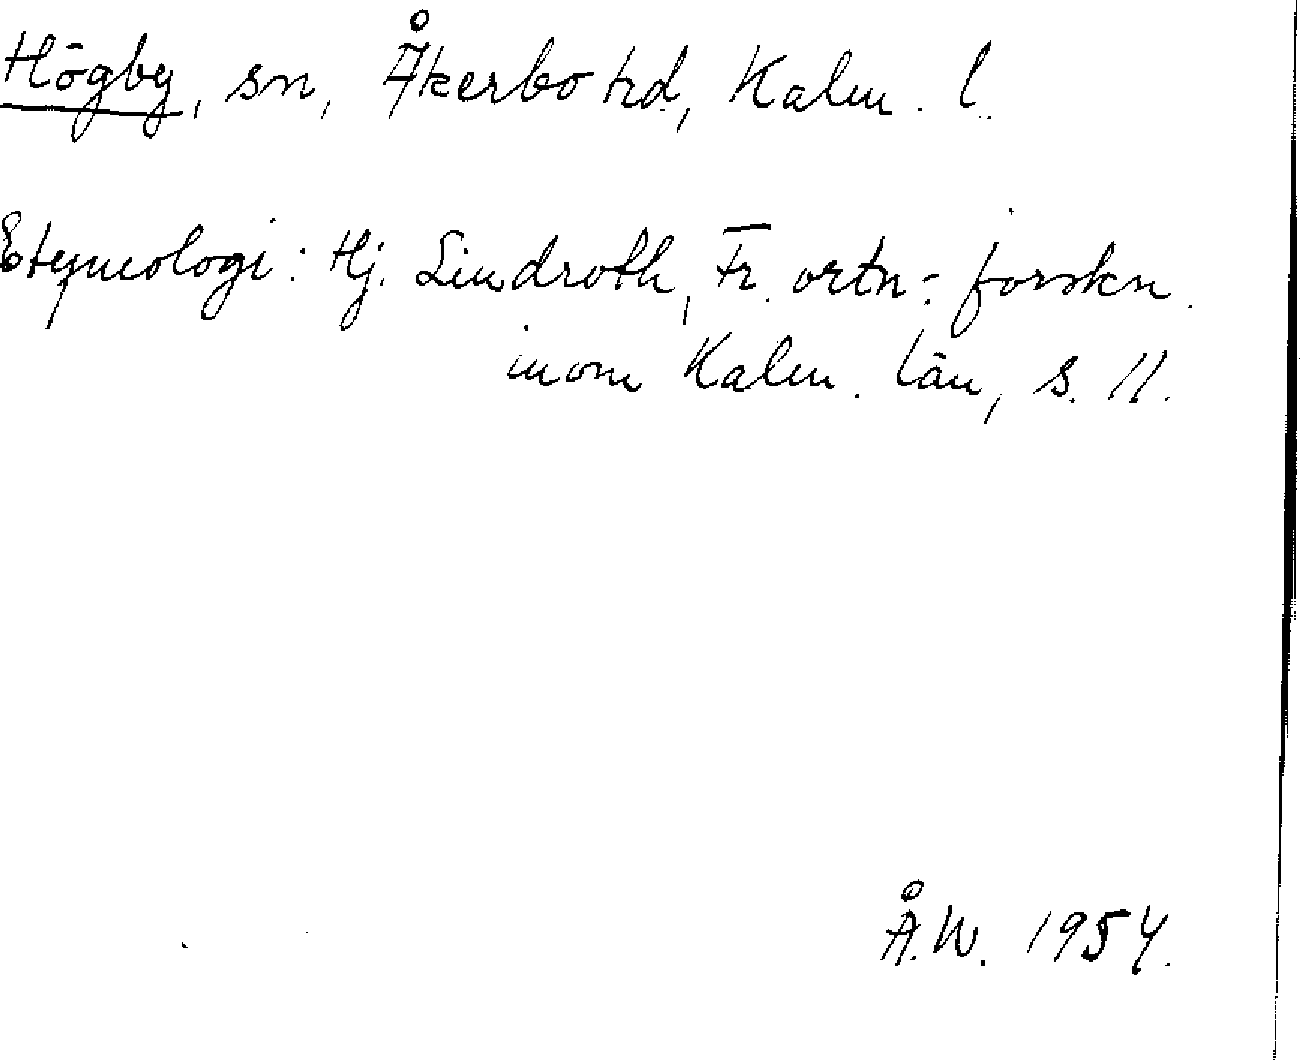 Högby, sn, Åkerbo hd, Kalm. l.
Etymologi: Hj. Lindroth, Fr. ortn.-forskn.
inom Kalm. län, s. 11.
Å.W. 1954.